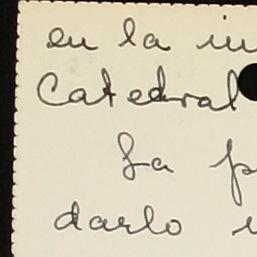 en la
Catedral
La
darlo